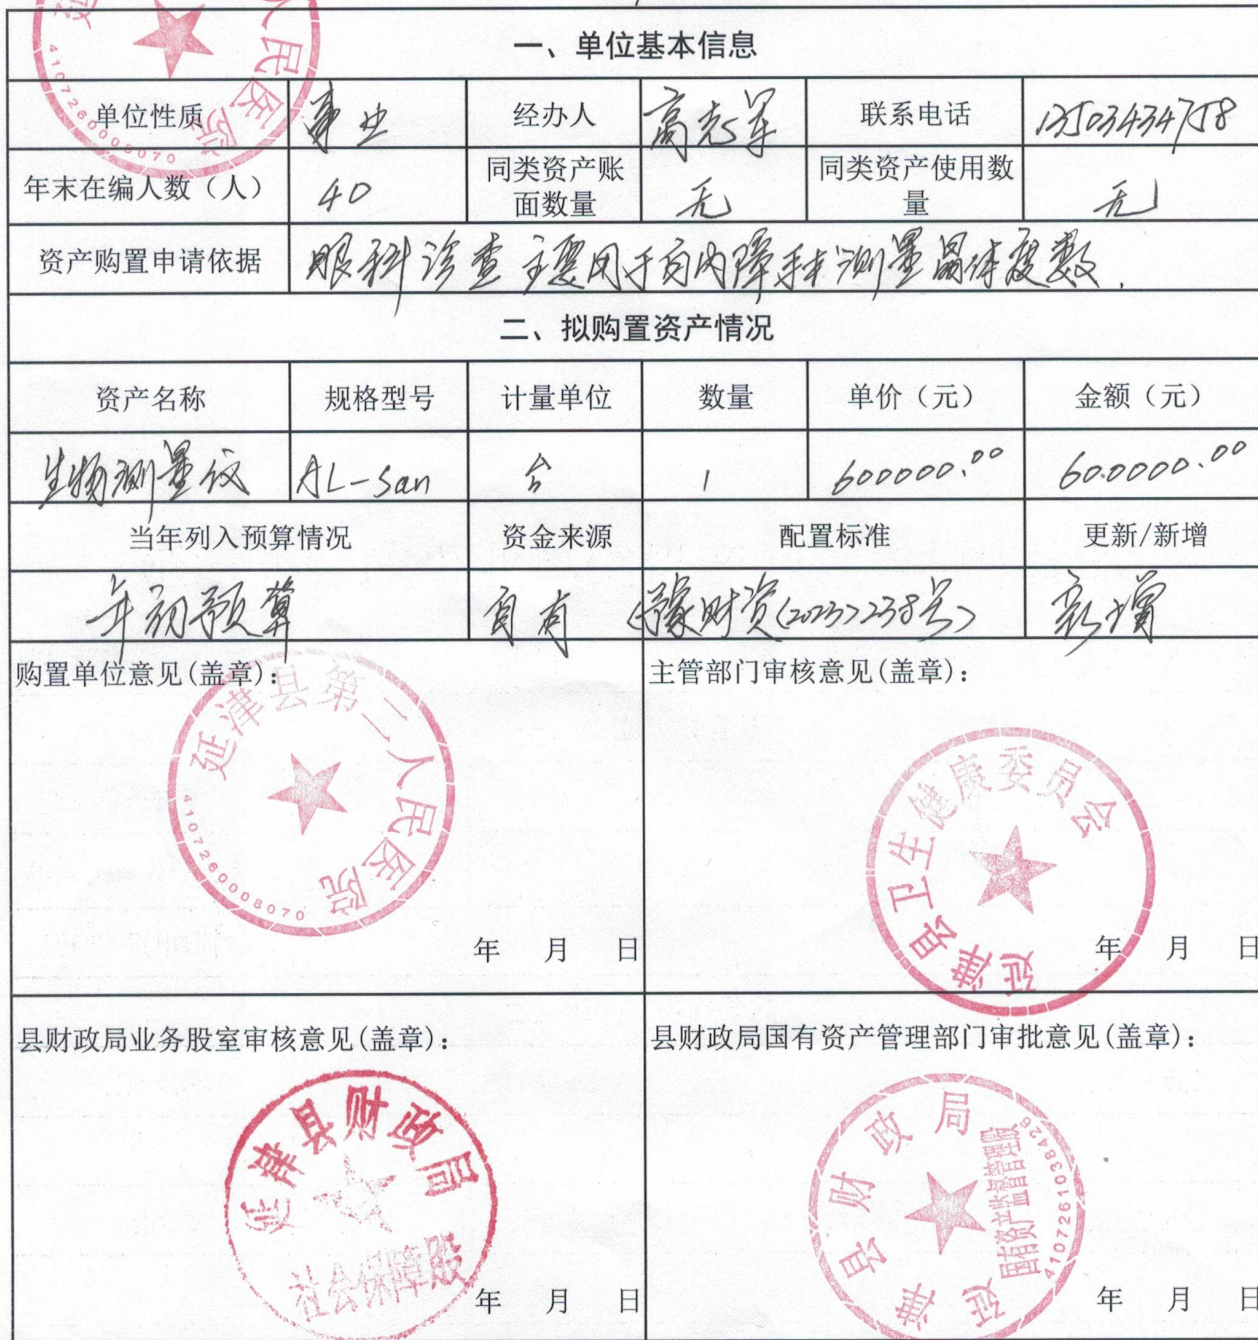 人民医院
4107260008070
一、单位基本信息
单位性质 事业 经办人 高志军 联系电话 13503434758
年末在编人数（人） 40 同类资产账面数量 无 同类资产使用数量 无
资产购置申请依据 眼科诊查 主要用于白内障手术测量晶体度数.
二、拟购置资产情况
资产名称 规格型号 计量单位 数量 单价（元） 金额（元）
生物测量仪 AL-San 台 1 600000.00 600000.00
当年列入预算情况 资金来源 配置标准 更新/新增
年初预算 自有 《豫财资(2023)238号》 新增
购置单位意见(盖章)：
延津县第二人民医院
4107260008070
年 月 日
主管部门审核意见(盖章)：
延津县卫生健康委员会
年 月 日
县财政局业务股室审核意见(盖章)：
延津县财政局
社会保障股
年 月 日
县财政局国有资产管理部门审批意见(盖章)：
延津县财政局
国有资产监督管理股
4107261038426
年 月 日